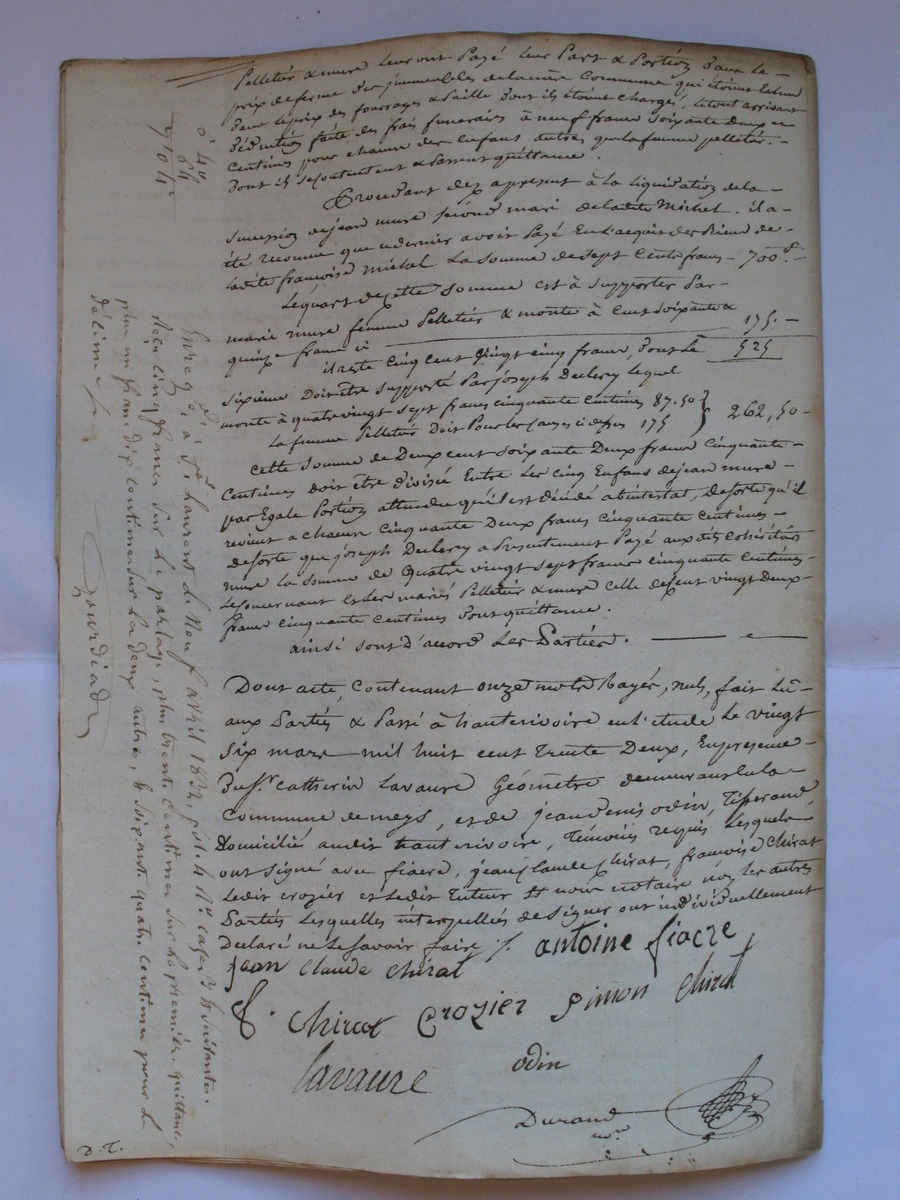 Pelletier & mure leur ont Payé leur Part & Portion dans le
prix de ferme des jmmeubles de la même Commune qui étoient
dans le prix des fourrages & Paille dont ils étoient chargés, le tout arrivant
déduction faite des frais funeraires à neuf francs soixante Deux
Centimes pour chacun des Enfants autres que la femme pelletier.
dont ils se contentent & Passent quittance.
Procedant dez apresent à la liquidation de la
succession de jean mure second mari de la dite Michel. il a
été reconnu que ce dernier avoit Payé En l'acquit des Biens de
ladite françoise michel La somme de sept Cents francs - 700 f. -
Le quart de cette somme est à supporter Par
marie mure femme Pelletier & monte à Cent soixante &
quinze francs ci 175. -
il reste Cinq cent Vingt cinq francs, dont Le 525
sixieme Doit être supporté Par joseph Duclery Lequel
monte à quatre vingt sept francs cinquante Centimes 87.50 } 262,50 -
La femme Pelletier Doit Pour les Causes ci dessus 175
Cette somme de Deux cent soixante Deux francs Cinquante
Centimes doit être divisée Entre Les cinq Enfans de jean mure
par Egale Portion attendu qu'il est décédé abintestat, de sorte qu'il
revient a chacun Cinquante Deux francs cinquante centimes
de sorte que joseph Duclery a Presentement Payé aux dits Cohéritiers
mure la somme de Quatre vingt sept francs cinquante Centimes
Le concernant & Les mariés Pelletier & mure celle de cent vingt Deux
francs cinquante Centimes dont quittance.
ainsi sont D'accord Les Parties.
Dont acte, Contenant onze mots Rayés, nuls, fait Lu
aux Parties & Passé à hauterivoire en l'étude Le vingt
six mars mil huit cent Trente Deux, En presence
De Sr. Catherin Lavaure Géomètre demeurant en la
Commune de meys, et de jean denis odin, Tisserand
Domicilié audit hauterivoire, Témoins requis Lesquels
ont signé avec fiacre, jean claude chirat, françoise Chirat
Ledit crozier et ledit Tuteur & nous notaire non les autres
Parties Lesquelles interpellées de signer ont individuellement
Declaré ne le savoir faire /.
antoine fiacre
jean Claude Chirat
F. Chirat Crozier Simon Chirat
Lavaure odin
Durand nre
D. T.
Enregé. à St. Laurent le Neuf avril 1832, fol. 4 Ro. cases 3 & suivantes.
Reçu cinq francs sur le partage, plus trente centimes sur la première quittance,
plus un franc dix centimes sur les deux autres, & soixante quatre centimes pour le
décime /.
Gourdiad
5" 40
" 64